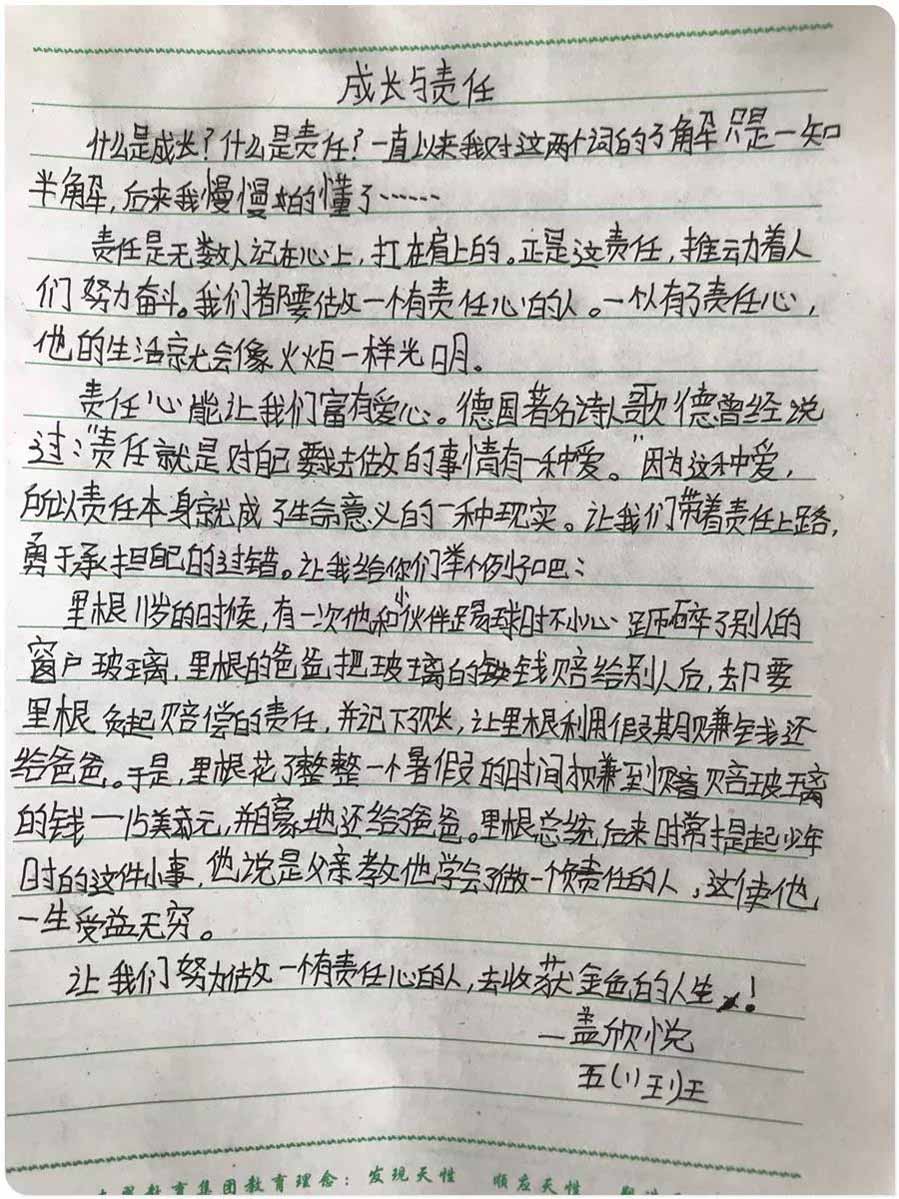 成长与责任
什么是成长?什么是责任?一直以来我对这两个词的了解只是一知
半解,后来我慢慢的懂了……
责任是无数人记在心上,扛在肩上的。正是这责任,推动着人
们努力奋斗。我们都要做一个有责任心的人。一个人有了责任心,
他的生活就会像火炬一样光明。
责任心能让我们富有爱心。德国著名诗人歌德曾经说
过:“责任就是对自己要求去做的事情有一种爱。”因为这种爱,
所以责任本身就成了生命意义的一种现实。让我们带着责任上路,
勇于承担自己的过错。让我给你们举个例子吧:
里根11岁的时候,有一次他和小伙伴踢球时不小心砸碎了别人的
窗户玻璃,里根的爸爸把玻璃的钱赔给别人后,却要
里根负起赔偿的责任,并记下账,让里根利用假期赚钱还
给爸爸。于是,里根花了整整一个暑假的时间赚到赔玻璃
的钱一15美元,并自豪地还给了爸爸。里根总统后来时常提起少年
时的这件小事,他说是父亲教他学会了做一个负责任的人,这使他
一生受益无穷。
让我们努力做一个有责任心的人,去收获金色的人生!
一盖欣悦
五(1)班
教育集团教育理念:发现天性 顺应天性